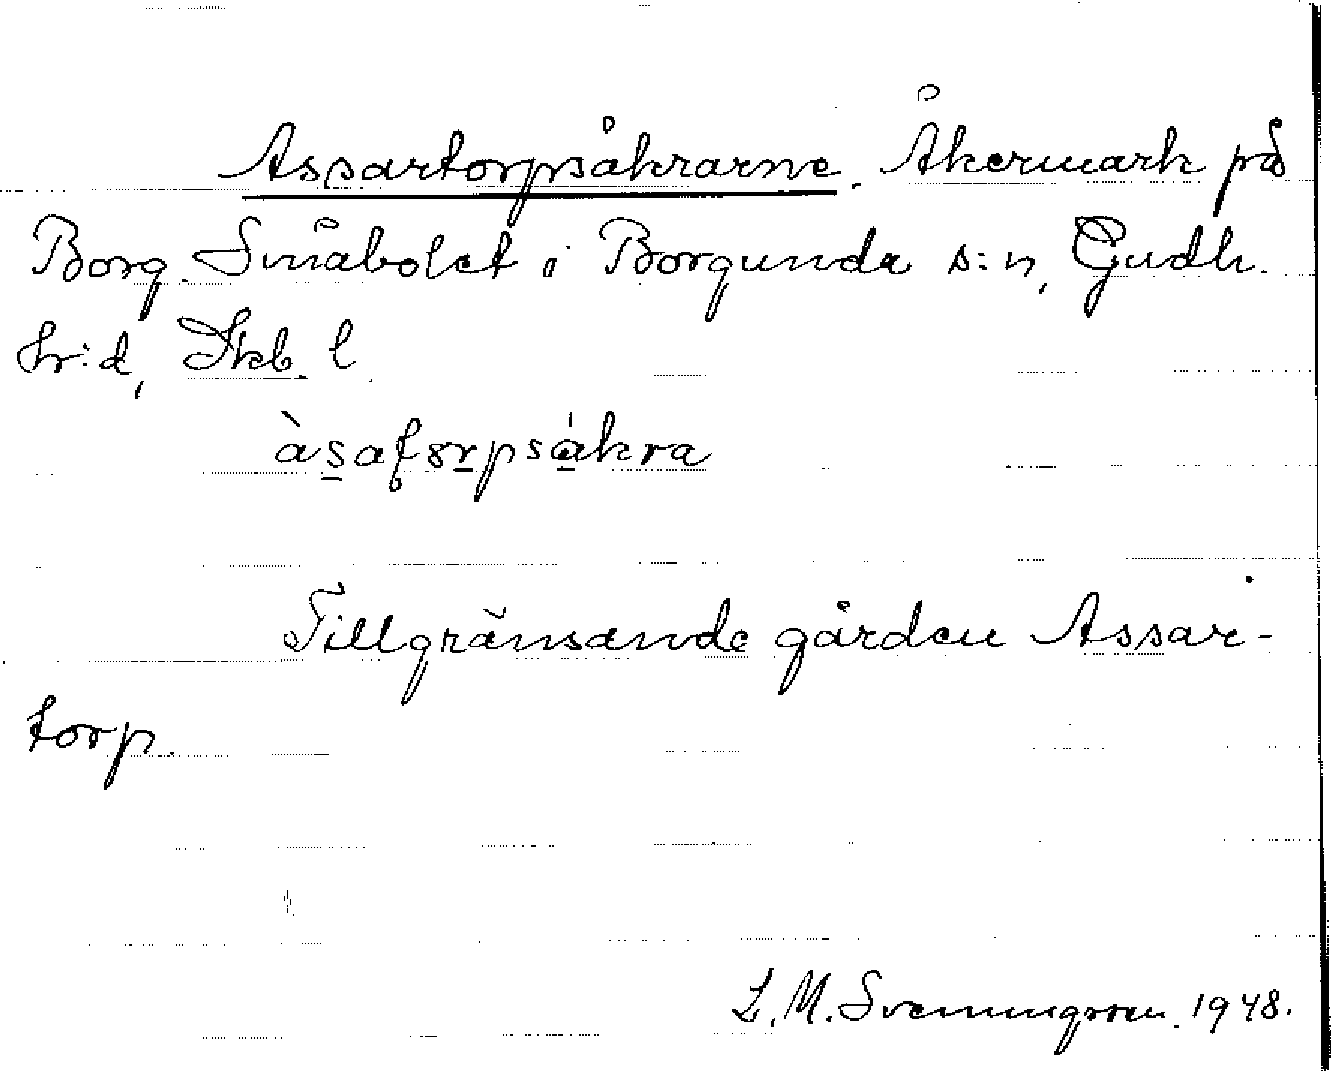 Assartorpsåkrarne. Åkermark på
Borg. Småbolet i Borgunda s:n, Gudh.
hr:d, Skb. l.
Tillgränsande gården Assar-
torp.
L. M. Svenungsson. 1948.